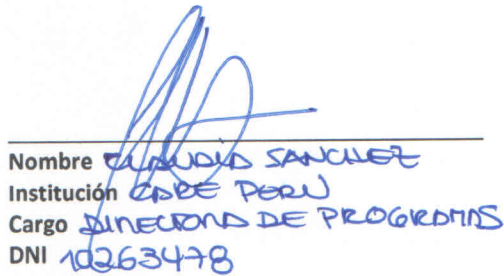 Nombre CLAUDIA SANCHEZ
Institución CARE PERU
Cargo DIRECTORA DE PROGRAMAS
DNI 10263478